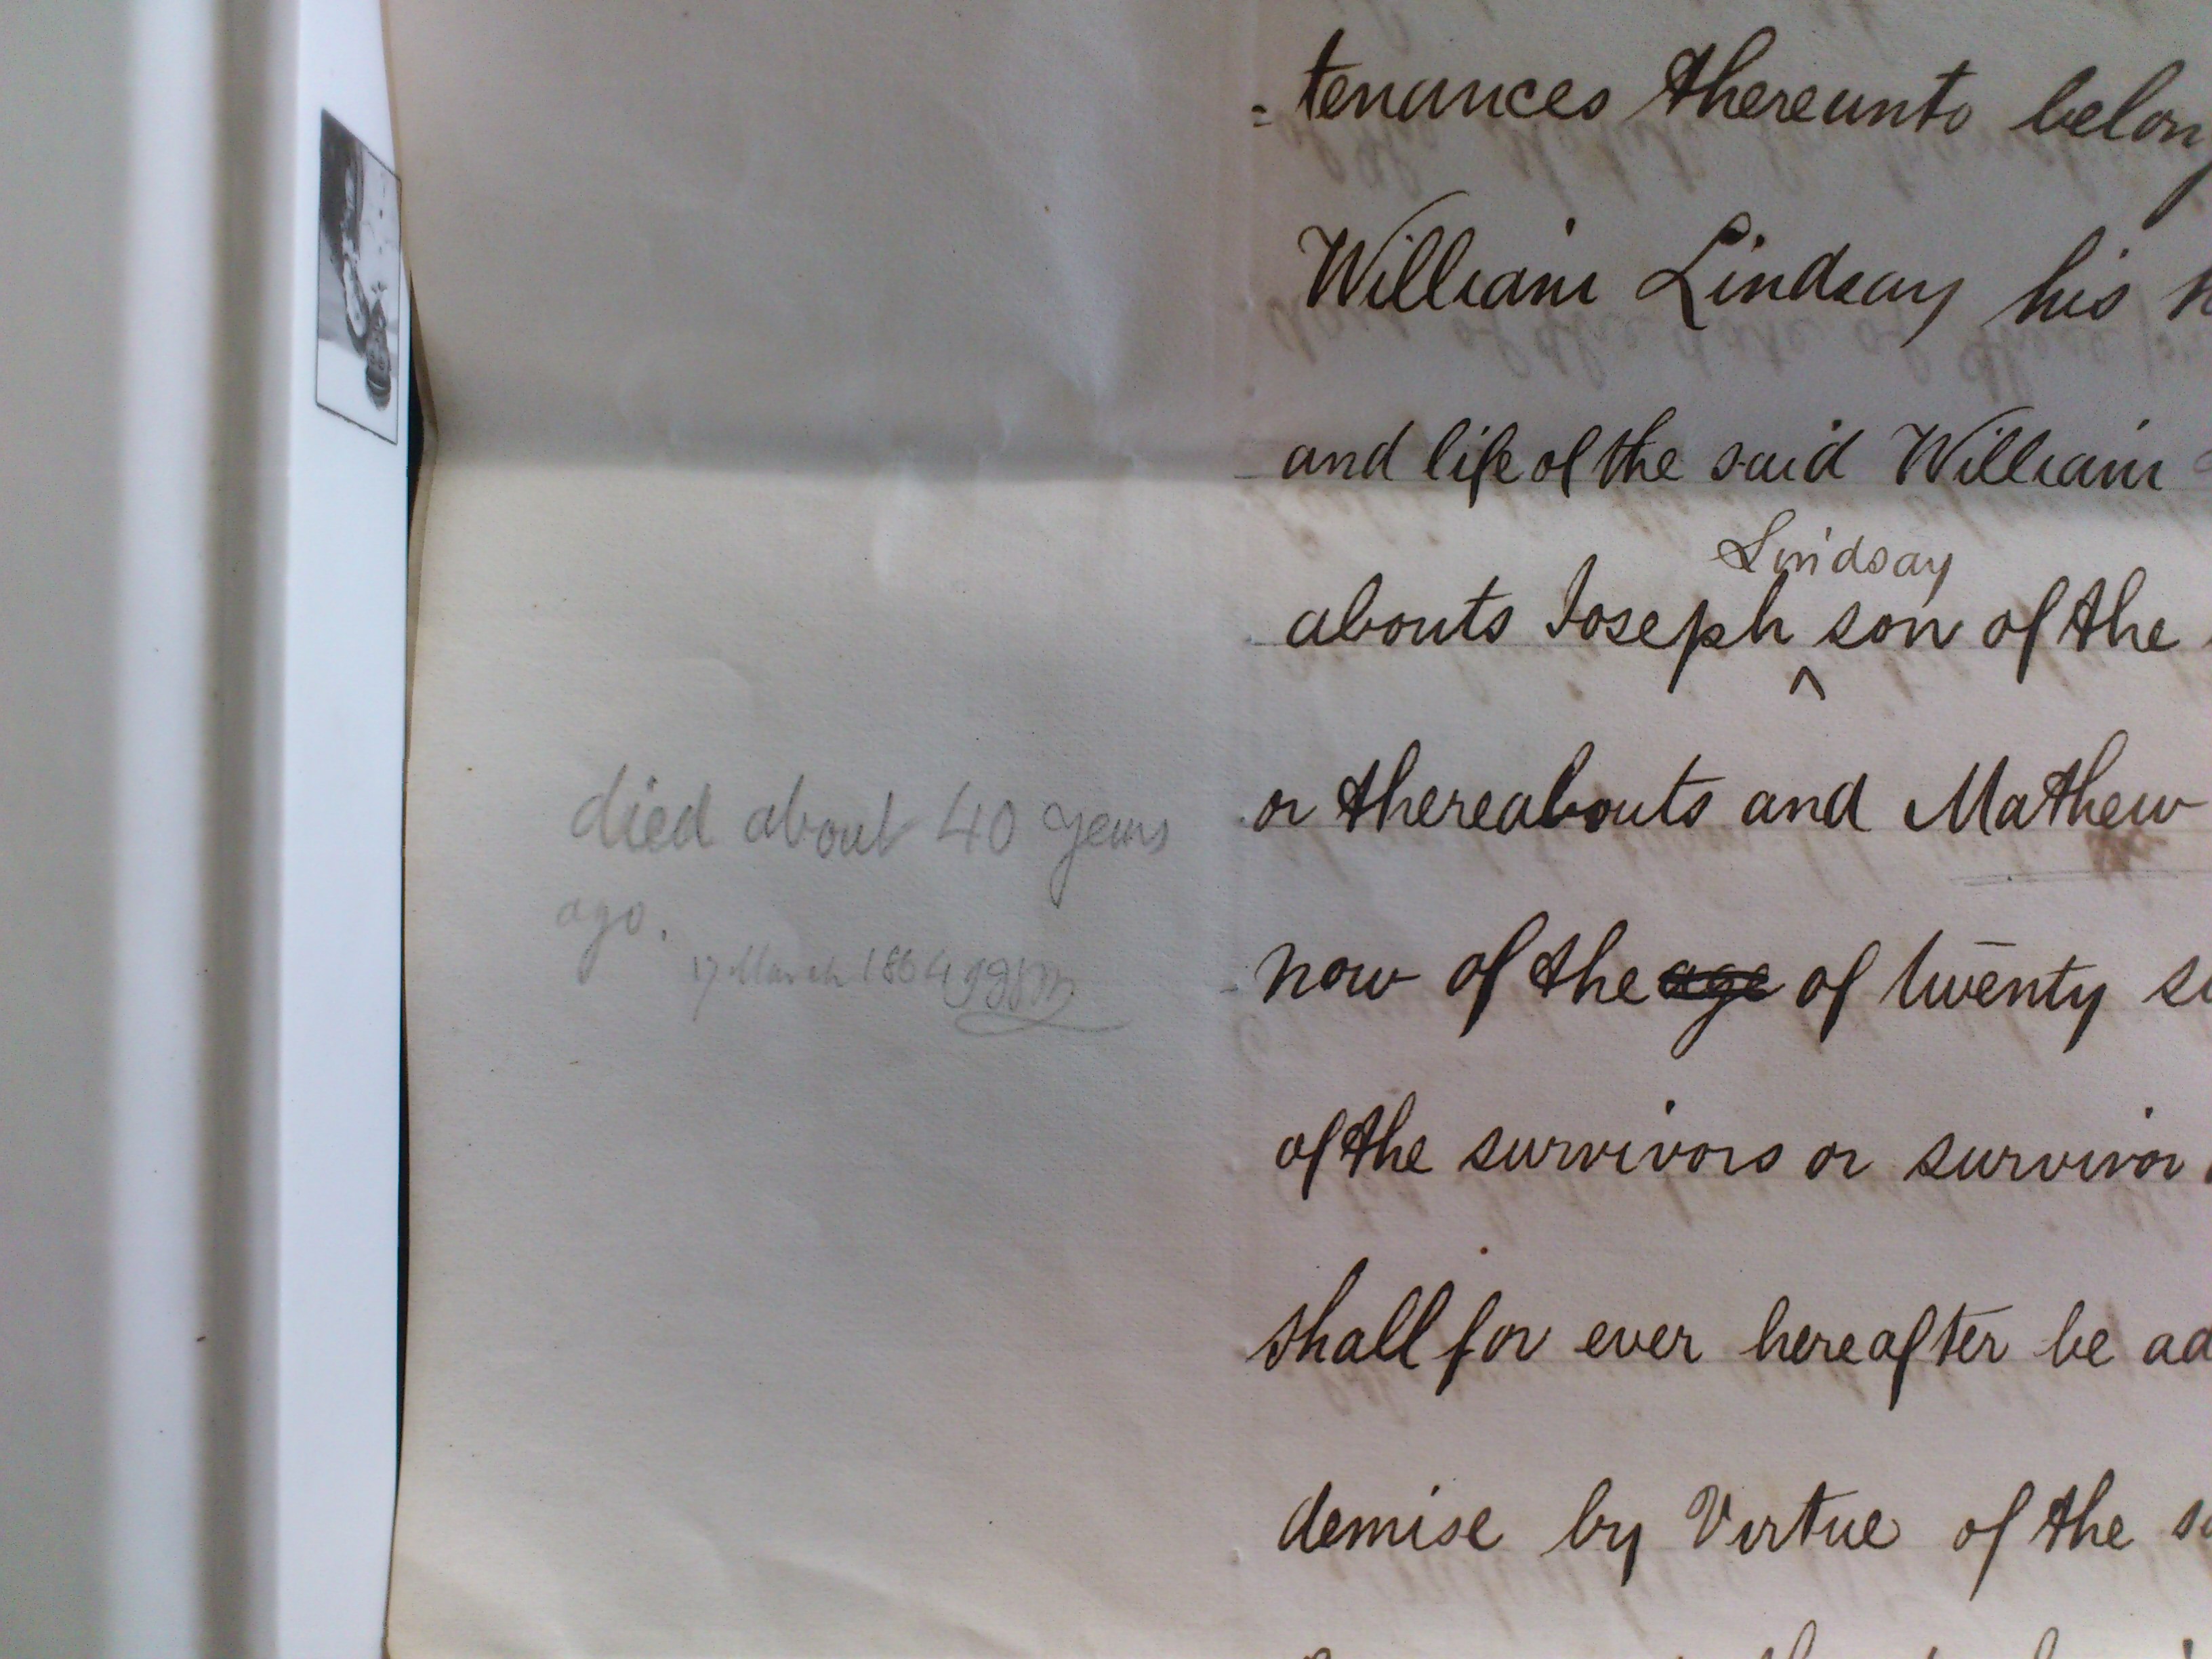 =tenances thereunto belong
William Lindsay his h
and life of the said William
Lindsay
abouts Joseph ^ son of the
or thereabouts and Mathew
died about 40 years
ago.
17 March 1864
now of the age of twenty s
of the survivors or survivor
shall for ever hereafter be ad
demise by Virtue of the sa